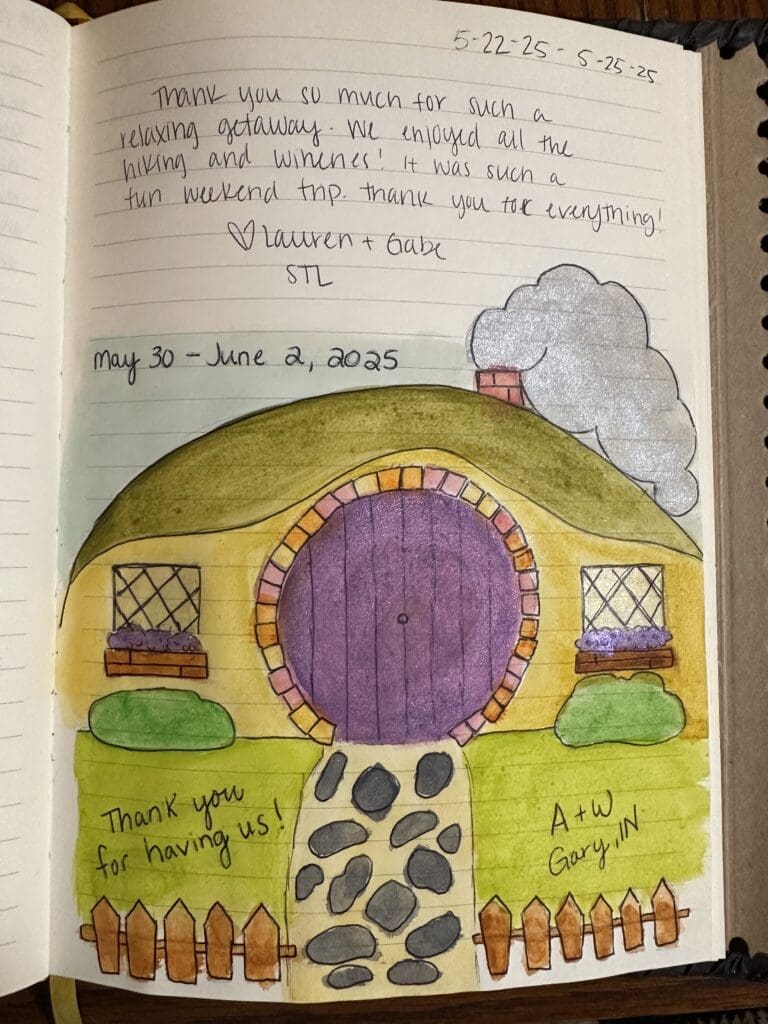 5-22-25 - 5-25-25
Thank you so much for such a
relaxing getaway. We enjoyed all the
hiking and wineries! It was such a
fun weekend trip. Thank you for everything!
♡ Lauren + Gabe
STL
May 30 - June 2, 2025
Thank you
for having us!
A + W
Gary, IN